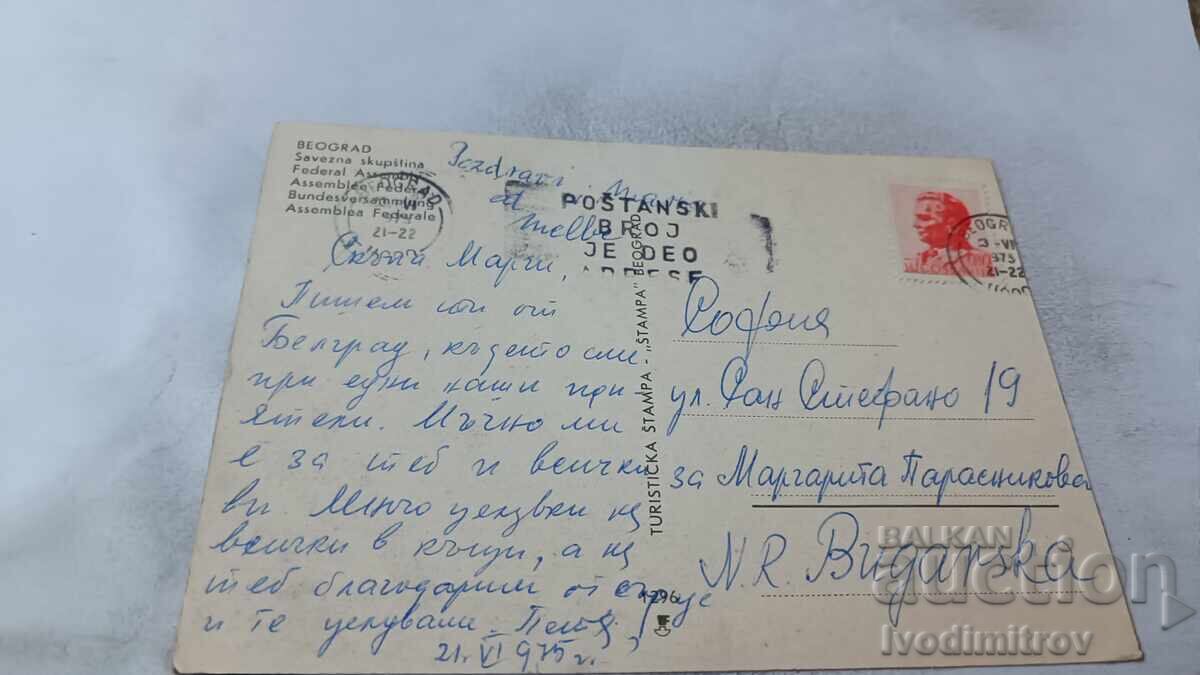 BEOGRAD
Savezna skupština
Federal Assembly
Assemblée Federale
Bundesversammlung
Assemblea Federale
Pozdravi
od
BEOGRAD
VI
21-22
POŠTANSKI
BROJ
JE DEO
ADRESE
BEOGRAD
VI
1975
21-22
Скъпи Марги,
Пишем ти от
Белград, където сме
при едни наши при
ятели. Мъчно ми
е за теб и всички
ви. Много целувки на
всички в къщи, а на
теб благодарим от сърце
и те целувам. Петя
21. VI 975 г.
TURISTIČKA ŠTAMPA - „ŠTAMPA" BEOGRAD
1-296
София
ул. Сан Стефано 19
за Маргарита
N.R. Bugarska
BALKAN
auction
Ivodimitrov